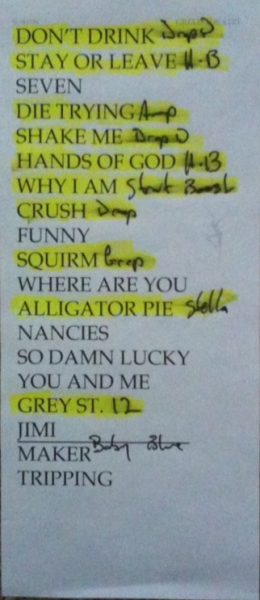 DON'T DRINK Drop D
STAY OR LEAVE H-B
SEVEN
DIE TRYING Amp
SHAKE ME Drop D
HANDS OF GOD H-B
WHY I AM Short Boost
CRUSH Drop
FUNNY
SQUIRM
WHERE ARE YOU
ALLIGATOR PIE Stella
NANCIES
SO DAMN LUCKY
YOU AND ME
GREY ST. 12
JIMI
MAKER Baby Blue
TRIPPING